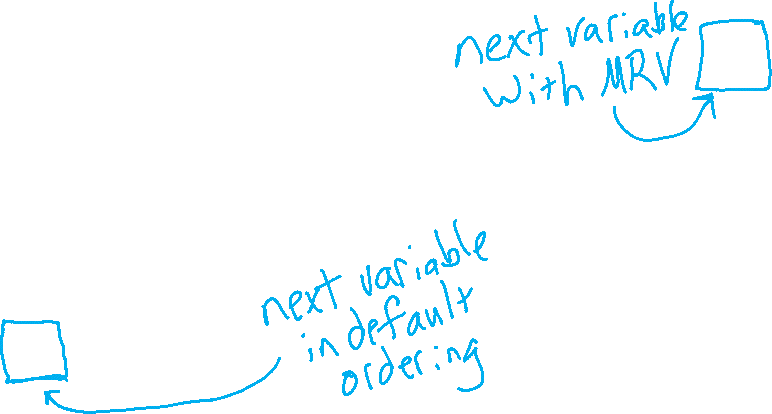 next variable
with MRV
next variable
in default
ordering